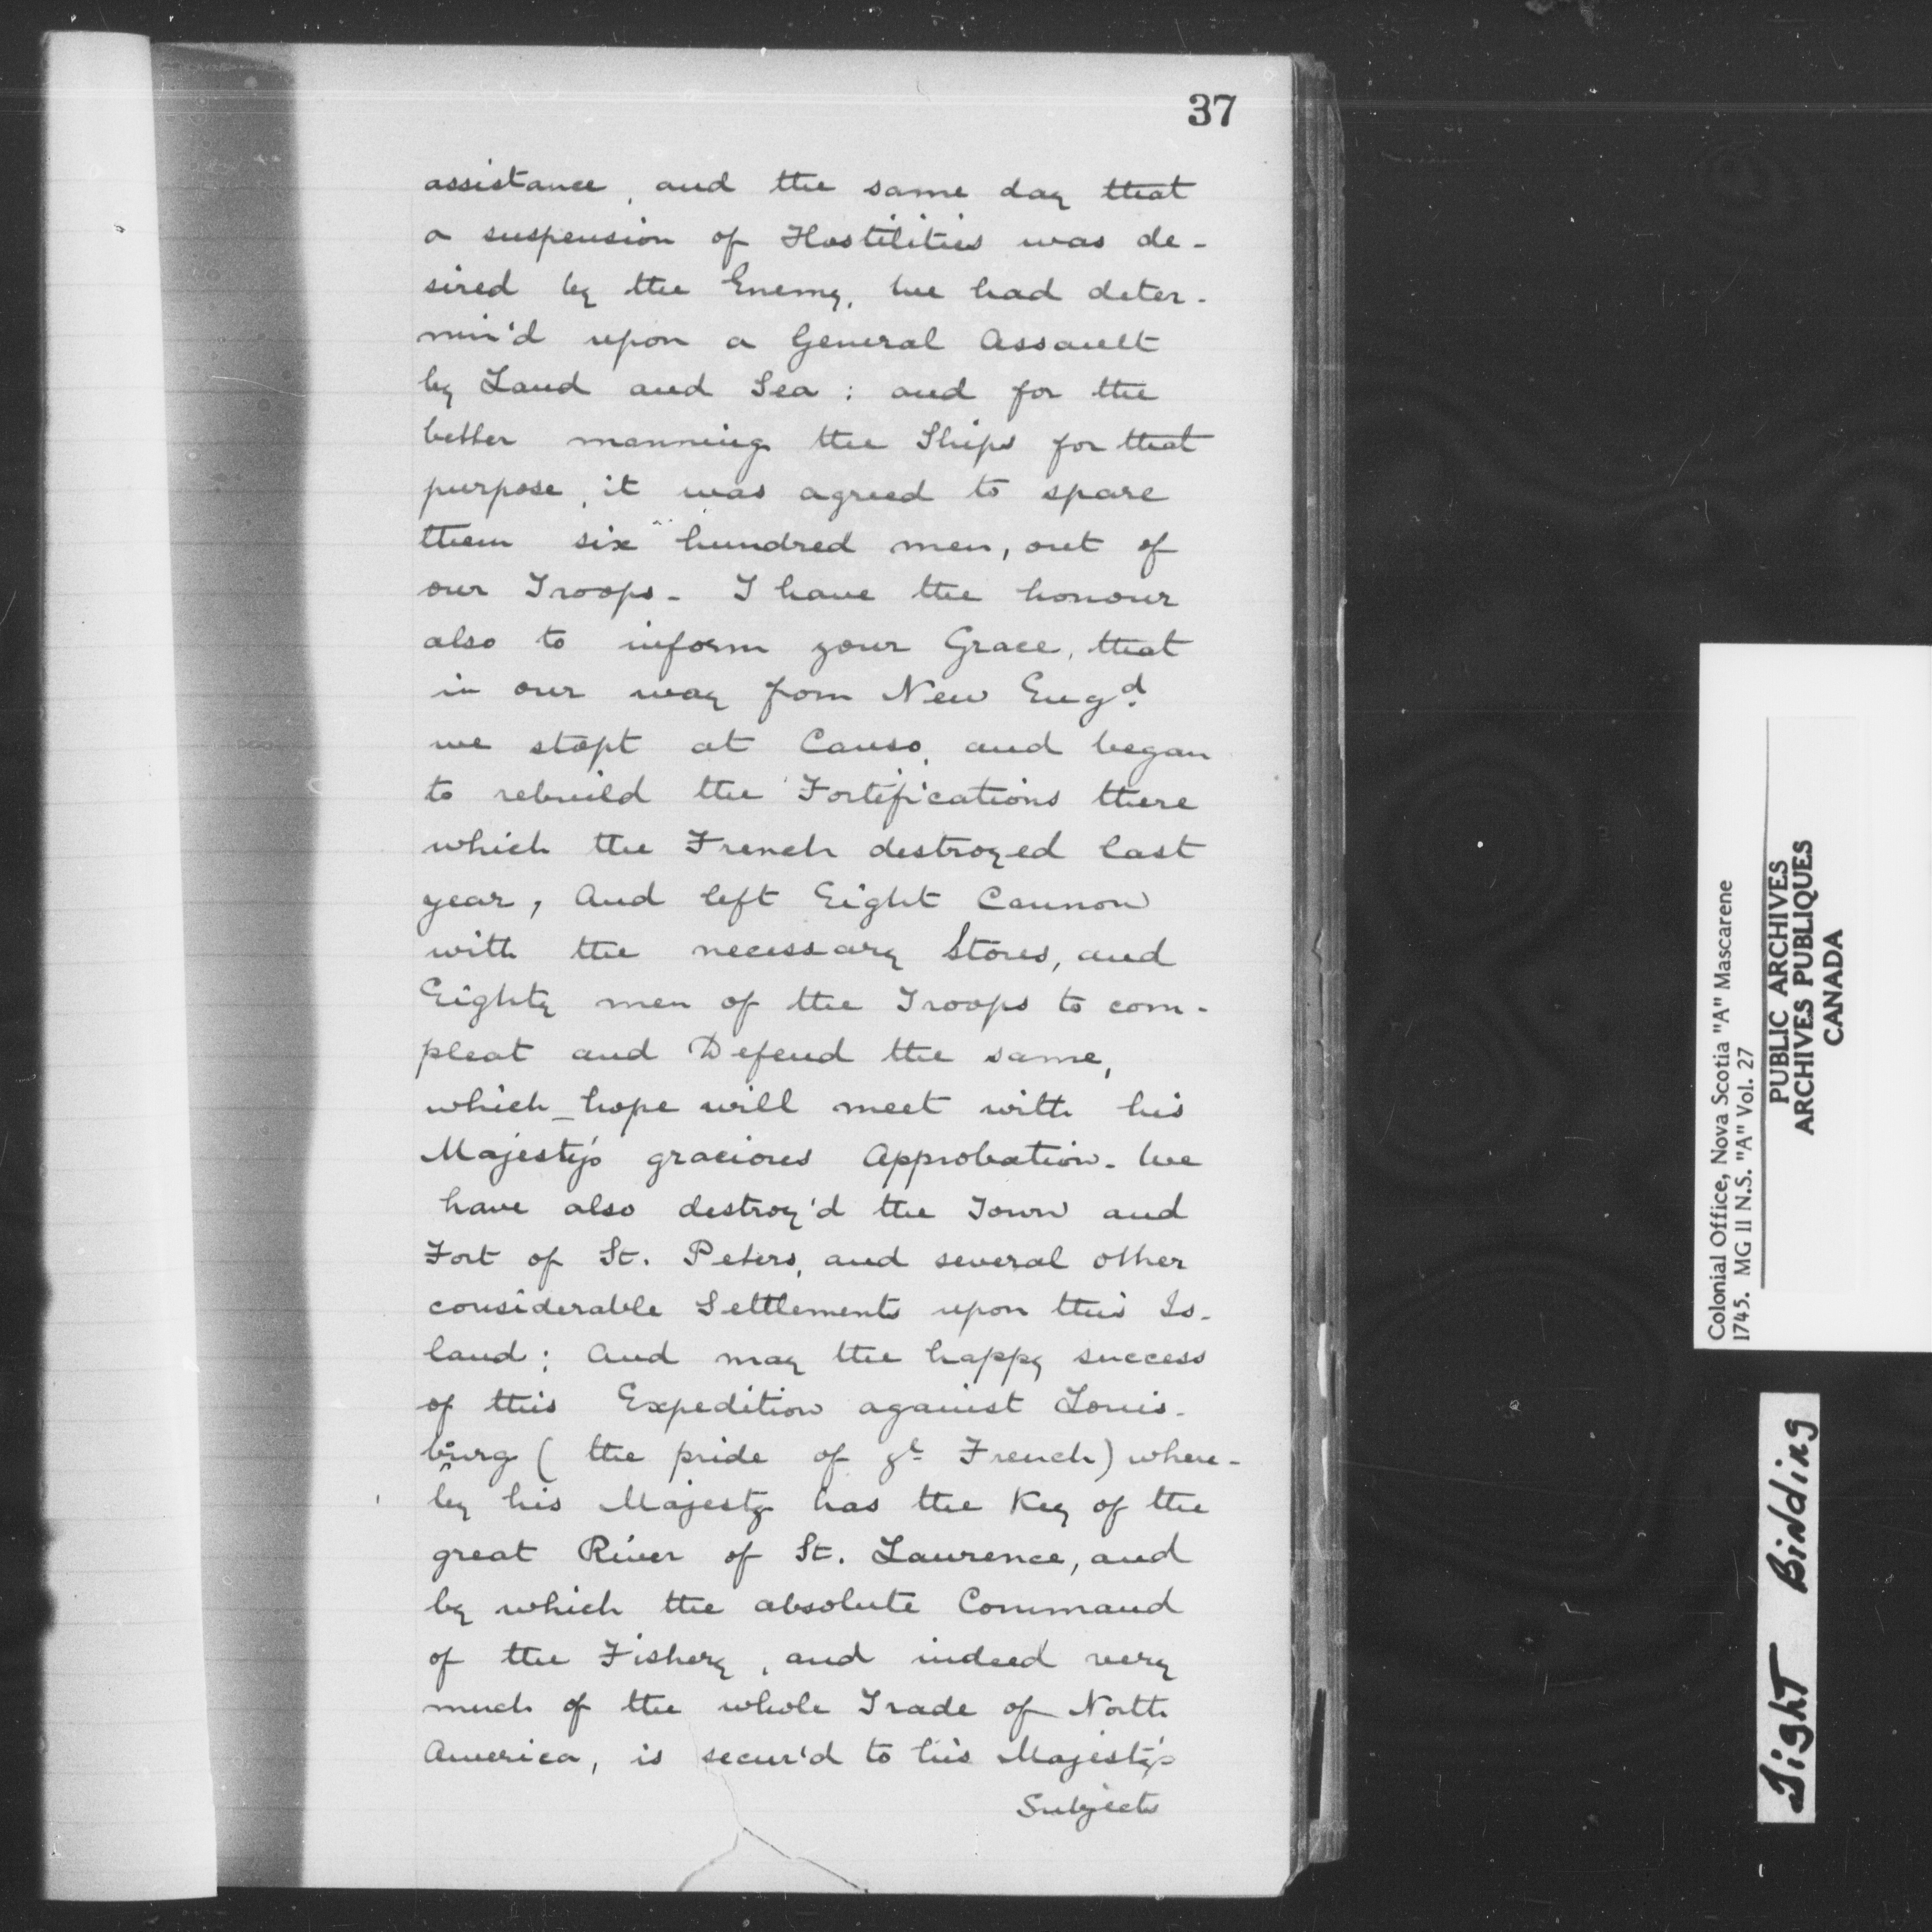 37
assistance, and the same day that
a suspension of Hostilities was de-
sired by the Enemy, we had deter-
min'd upon a General Assault
by Land and Sea: and for the
better manning the Ships for that
purpose, it was agreed to spare
them six hundred men, out of
our Troops. I have the honour
also to inform your Grace, that
in our way from New Engd.
we stopt at Canso, and began
to rebuild the Fortifications there
which the French destroyed last
year, And left Eight Cannon
with the necessary Stores, and
Eighty men of the Troops to com-
pleat and Defend the same,
which _ hope will meet with his
Majesty's gracious Approbation. We
have also destroy'd the Town and
Fort of St. Peters, and several other
considerable Settlements upon this Is-
land; And may the happy success
of this Expedition against Louis-
burg (the pride of ye French) where-
by his Majesty has the Key of the
great River of St. Laurence, and
by which the absolute Command
of the Fishery, and indeed very
much of the whole Trade of North
America, is secur'd to his Majesty's
Subjects
Colonial Office, Nova Scotia "A" Mascarene
1745. MG 11 N.S. "A" Vol. 27
PUBLIC ARCHIVES
ARCHIVES PUBLIQUES
CANADA
Tight Binding